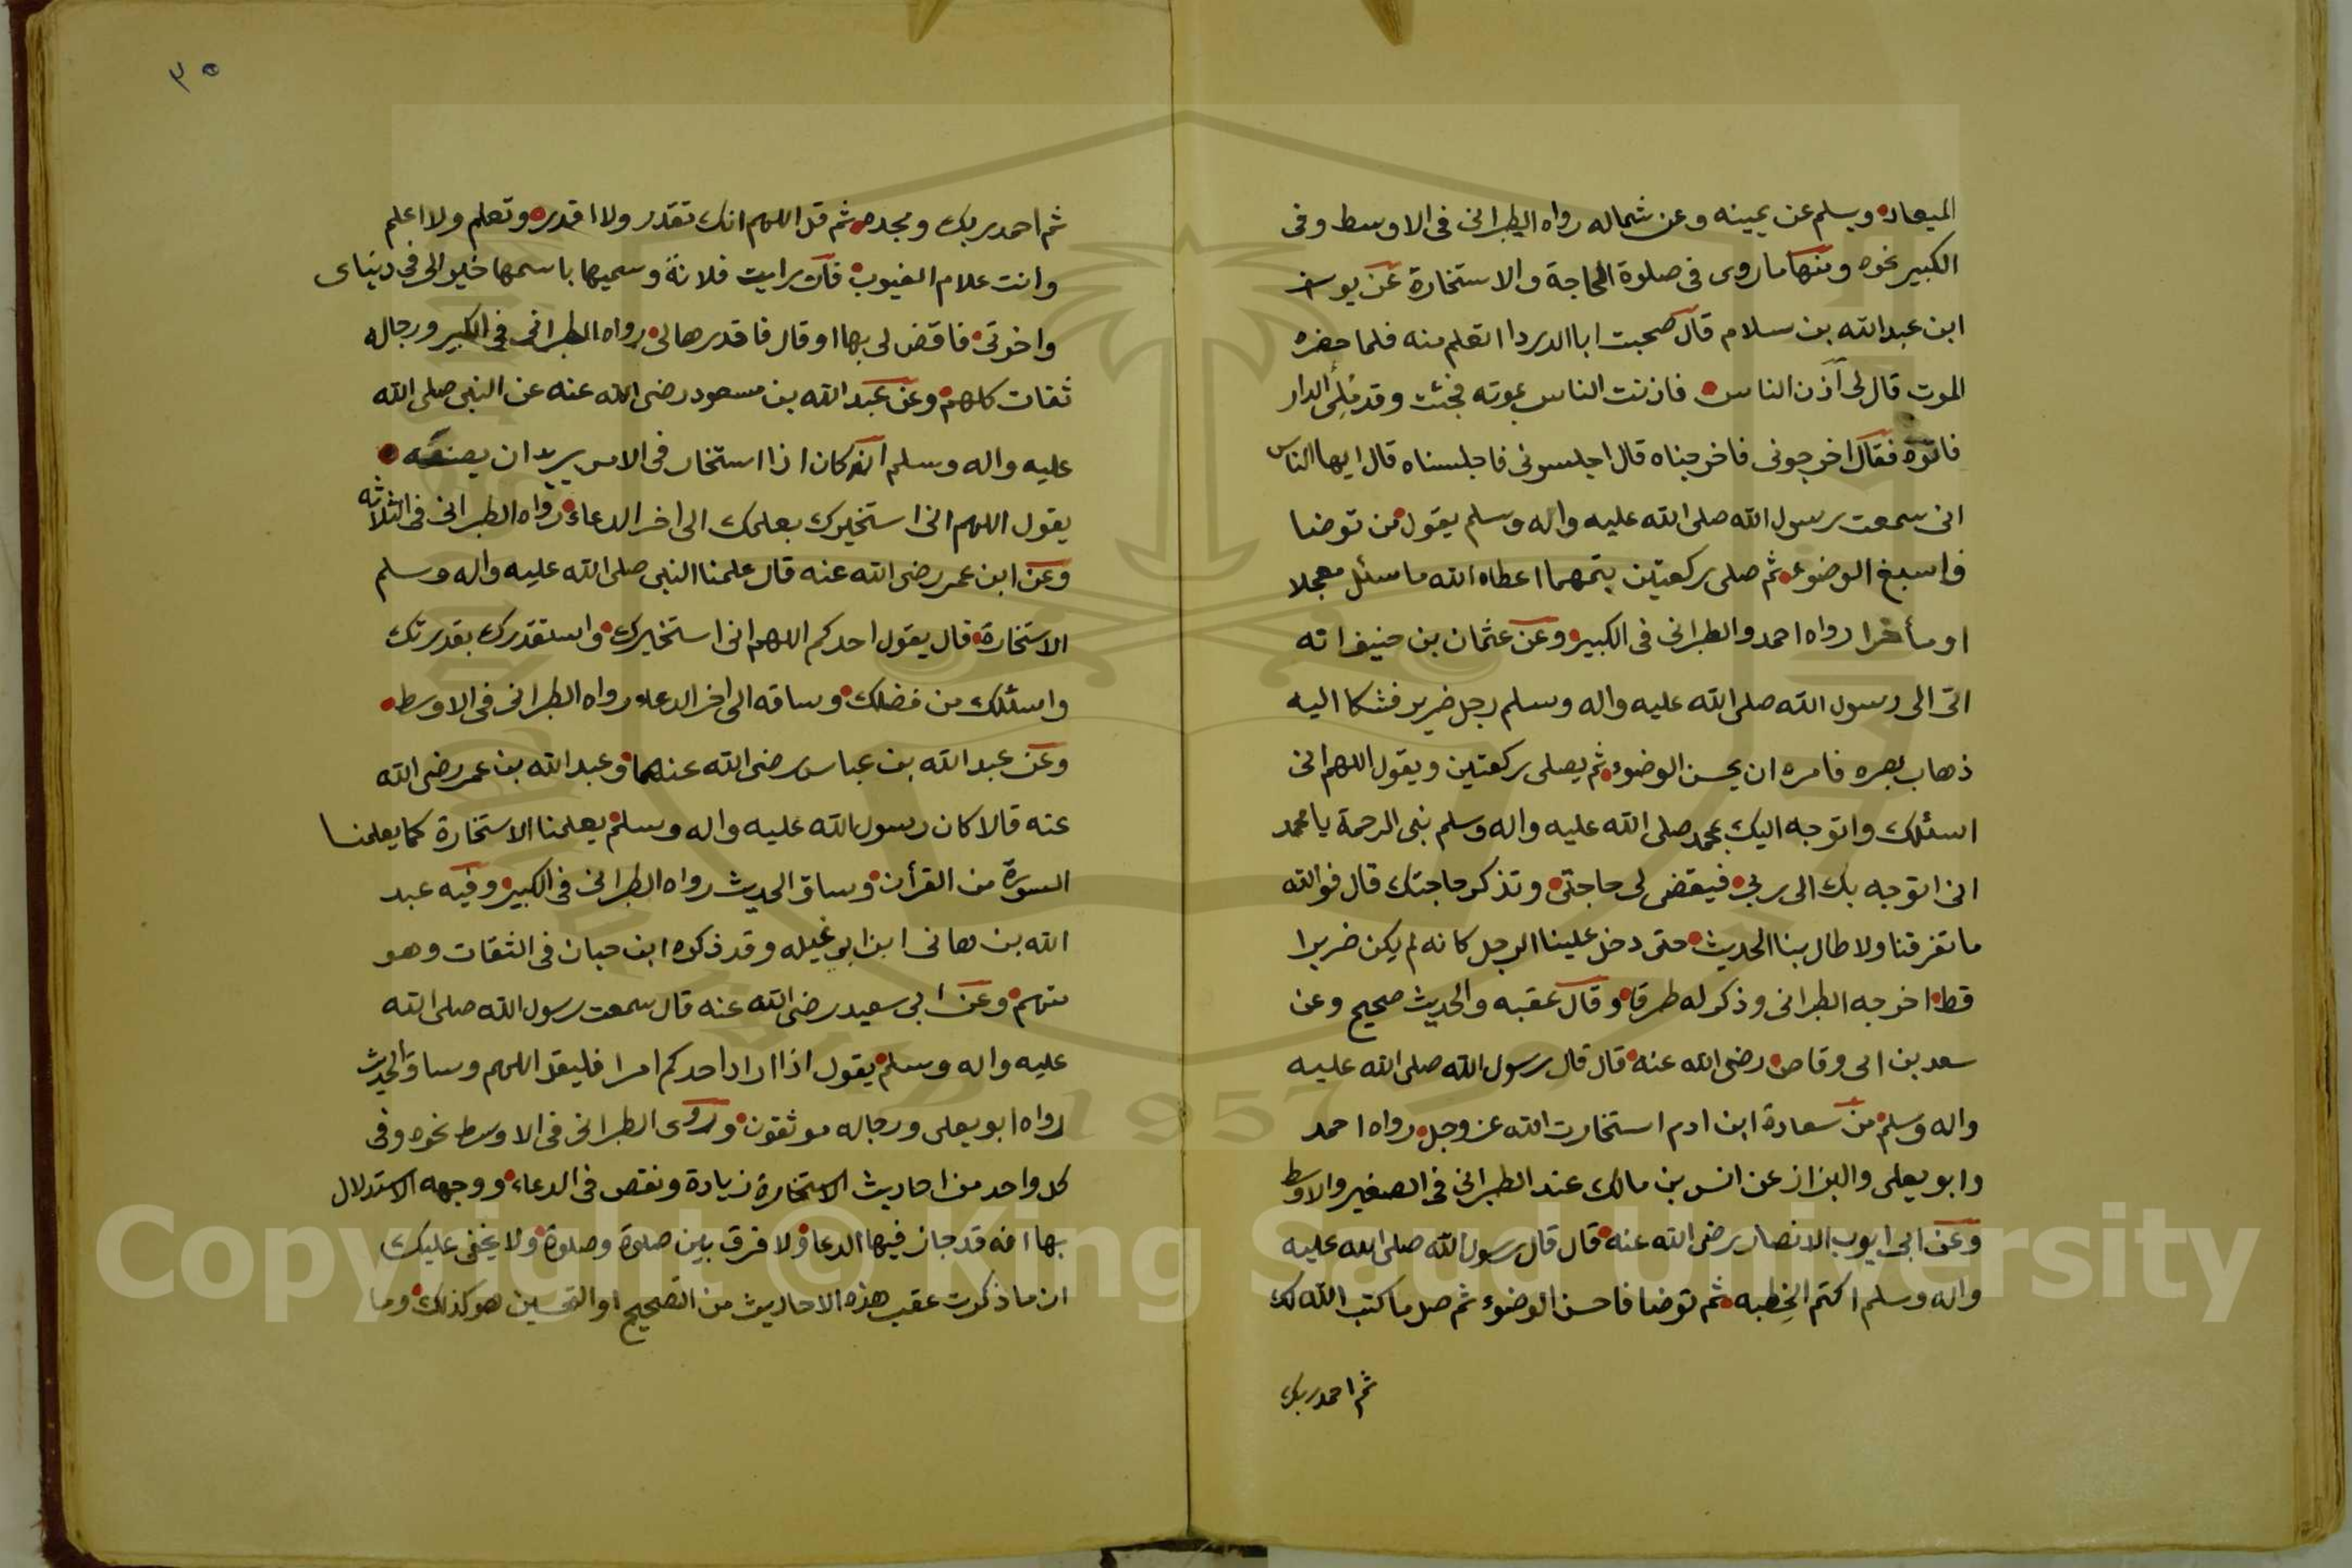 الميعاد ويسلم عن يمينه وعن شماله رواه الطبراني في الاوسط وفي
الكبير نحوه ومنها ما روى في صلوة الحاجة والاستخارة عن يوسف
ابن عبد الله بن سلام قال صحبت ابا الدردا اتعلم منه فلما حضره
الموت قال لى آذن الناس فاذنت الناس بموته فجئت وقد مُلِئَ الدار
فقال اخرجونى فاخرجناه قال اجلسونى فاجلسناه قال ايها الناس
انى سمعت رسول الله صلى الله عليه واله وسلم يقول من توضا
فاسبغ الوضوء ثم صلى ركعتين يتمهما اعطاه الله ما سئل معجلا
او مأخرا رواه احمد والطبرانى فى الكبير وعن عثمان بن حنيف انه
اتى الى رسول الله صلى الله عليه واله وسلم رجل ضرير فشكا اليه
ذهاب بصره فامره ان يحسن الوضوء ثم يصلى ركعتين ويقول اللهم انى
اسئلك واتوجه اليك بمحمد صلى الله عليه واله وسلم نبى الرحمة يا محمد
انى اتوجه بك الى ربى فيقضى لى حاجتى وتذكر حاجتك قال فوالله
ما تفرقنا ولا طال بنا الحديث حتى دخل علينا الرجل كانه لم يكن ضريرا
قط اخرجه الطبرانى وذكر له طرقا وقال عقبه والحديث صحيح وعن
سعد بن ابى وقاص رضى الله عنه قال قال رسول الله صلى الله عليه
واله وسلم من سعادة ابن ادم استخارت الله عز وجل رواه احمد
وابو يعلى والبزاز عن انس بن مالك عند الطبرانى فى الصغير والاوسط
وعن ابى ايوب الانصار رضى الله عنه قال قال رسول الله صلى الله عليه
واله وسلم اكتم الخِطبه ثم توضا فاحسن الوضوء ثم صل ما كتب الله لك
ثم احمد ربك
٣٥
ثم احمد ربك ومجده ثم قل اللهم انك تقدر ولا اقدر وتعلم ولا اعلم
وانت علام الغيوب فان رايت فلانة وسميها باسمها خير الى فى دنياى
واخرتى فاقض لى بها او قال فاقدرها لى رواه الطبرانى فى الكبير ورجاله
ثقات كلهم وعن عبد الله بن مسعود رضى الله عنه عن النبى صلى الله
عليه واله وسلم انه كان اذا استخار فى الامر يريد ان يصنعه
يقول اللهم انى استخيرك بعلمك الى اخر الدعاء رواه الطبرانى فى الثلاثه
وعن ابن عمر رضى الله عنه قال علمنا النبى صلى الله عليه واله وسلم
الاستخارة قال يقول احدكم اللهم انى استخيرك واستقدرك بقدرتك
واسئلك من فضلك وساقه الى اخر الدعاء رواه الطبرانى فى الاوسط
وعن عبد الله بن عباس رضى الله عنهما وعبد الله بن عمر رضى الله
عنه قالا كان رسول الله عليه واله وسلم يعلمنا الاستخارة كما يعلمنا
السورة من القرأن وساق الحديث رواه الطبرانى فى الكبير وفيه عبد
الله بن هانى ابن ابو عبله وقد ذكره ابن حبان فى الثقات وهو
متهم وعن ابى سعيد رضى الله عنه قال سمعت رسول الله صلى الله
عليه واله وسلم يقول اذا اراد احدكم امرا فليقل اللهم وساق الحديث
رواه ابو يعلى ورجاله موثقون وروى الطبرانى فى الاوسط نحوه وفى
كل واحد من احاديث الاستخارة زيادة ونقص فى الدعاء ووجهه الاستدلال
بها انه قد جاز فيها الدعا ولا فرق بين صلوة وصلوة ولا يخفى عليك
ان ما ذكرت عقب هذه الاحاديث من التصحيح او التحسين هو كذلك وما
1957
Copyright © King Saud University